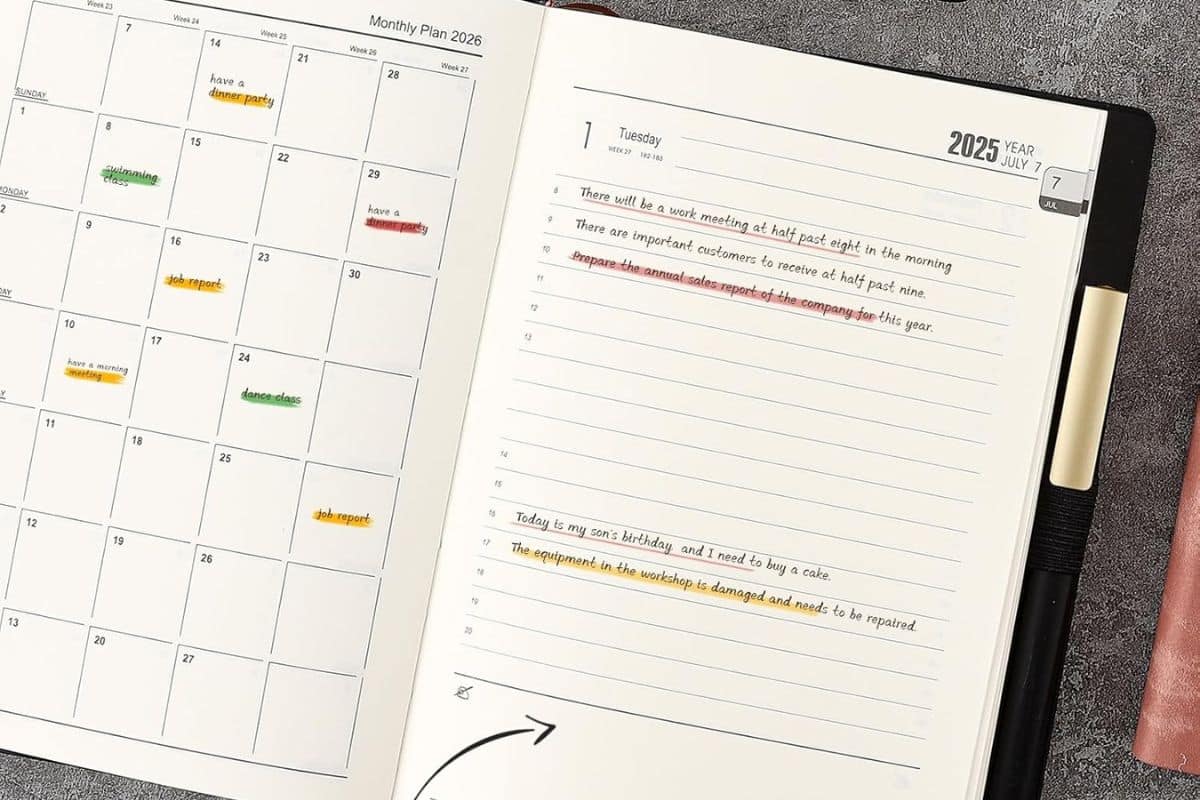 Monthly Plan 2026
Week 23
Week 24
Week 25
Week 26
Week 27
SUNDAY
7
14
have a
dinner party
21
28
1
MONDAY
8
swimming
class
15
22
29
have a
dinner party
2
9
16
job report
23
30
10
have a morning
meeting
17
24
dance class
11
18
25
job report
12
19
26
13
20
27
1
Tuesday
WEEK 27 182-183
2025 YEAR
JULY 7
7
JUL
8 There will be a work meeting at half past eight in the morning
9 There are important customers to receive at half past nine.
10 Prepare the annual sales report of the company for this year.
11
12
13
14
15
16 Today is my son's birthday, and I need to buy a cake.
17 The equipment in the workshop is damaged and needs to be repaired.
18
19
20